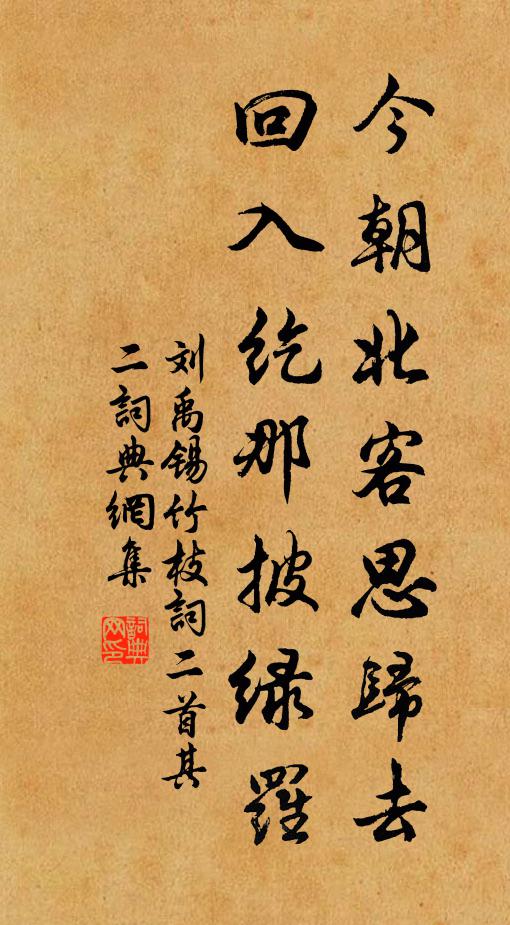 今朝北客思歸去
回入紇那披綠羅
刘禹锡竹枝詞二首其
二詞典網集
詞典网印